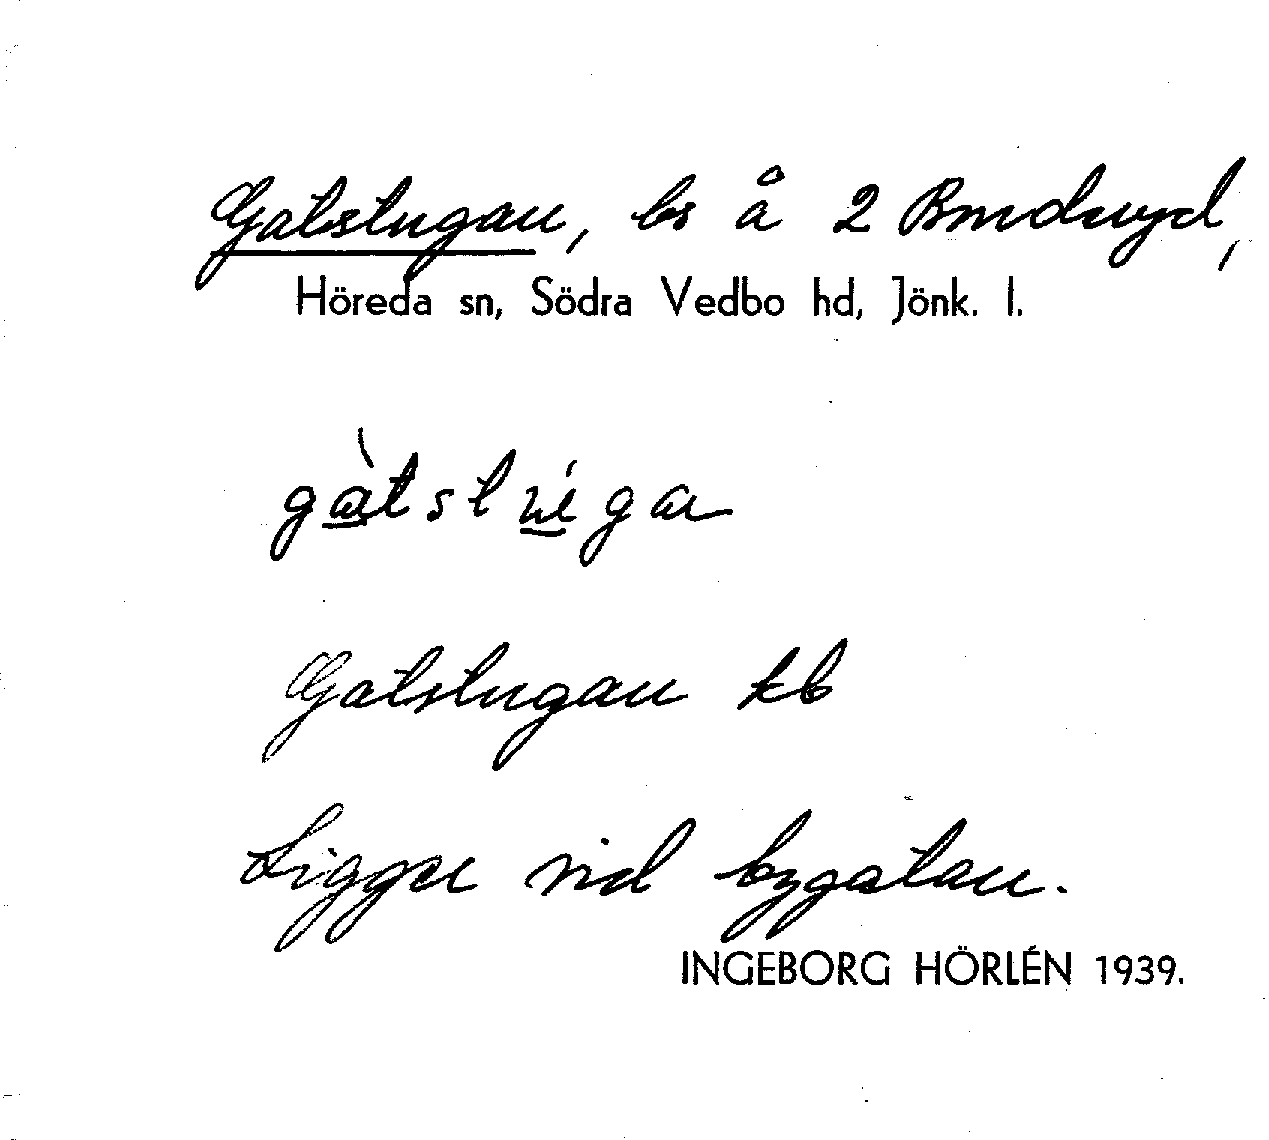 Gatstugan, bs å 2 Bruddaryd,
Höreda sn, Södra Vedbo hd, Jönk. l.
gàtstúga
Gatstugan kb
Ligger vid bygatan.
INGEBORG HÖRLÉN 1939.